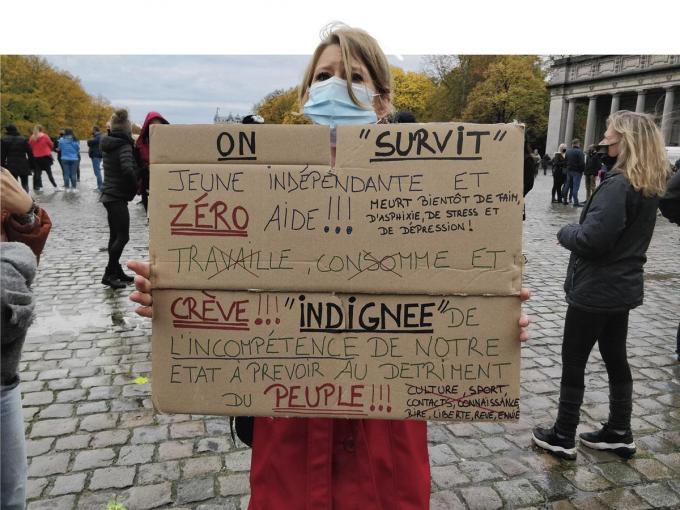 ON "SURVIT"
JEUNE INDÉPENDANTE ET
ZÉRO AIDE !!!
MEURT BIENTÔT DE FAIM,
D'ASPHIXIE, DE STRESS ET
DE DÉPRESSION !
TRAVAILLE, CONSOMME ET
CRÈVE !!! "INDIGNEE" DE
L'INCOMPÉTENCE DE NOTRE
ETAT A PREVOIR AU DETRIMENT
DU PEUPLE !!!
CULTURE, SPORT,
CONTACTS, CONNAISSANCE
RIRE, LIBERTE, REVE, ENVIE